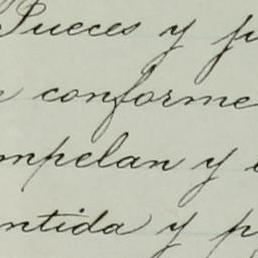 Jueces y ju
conforme
mpelan y
ntida y p